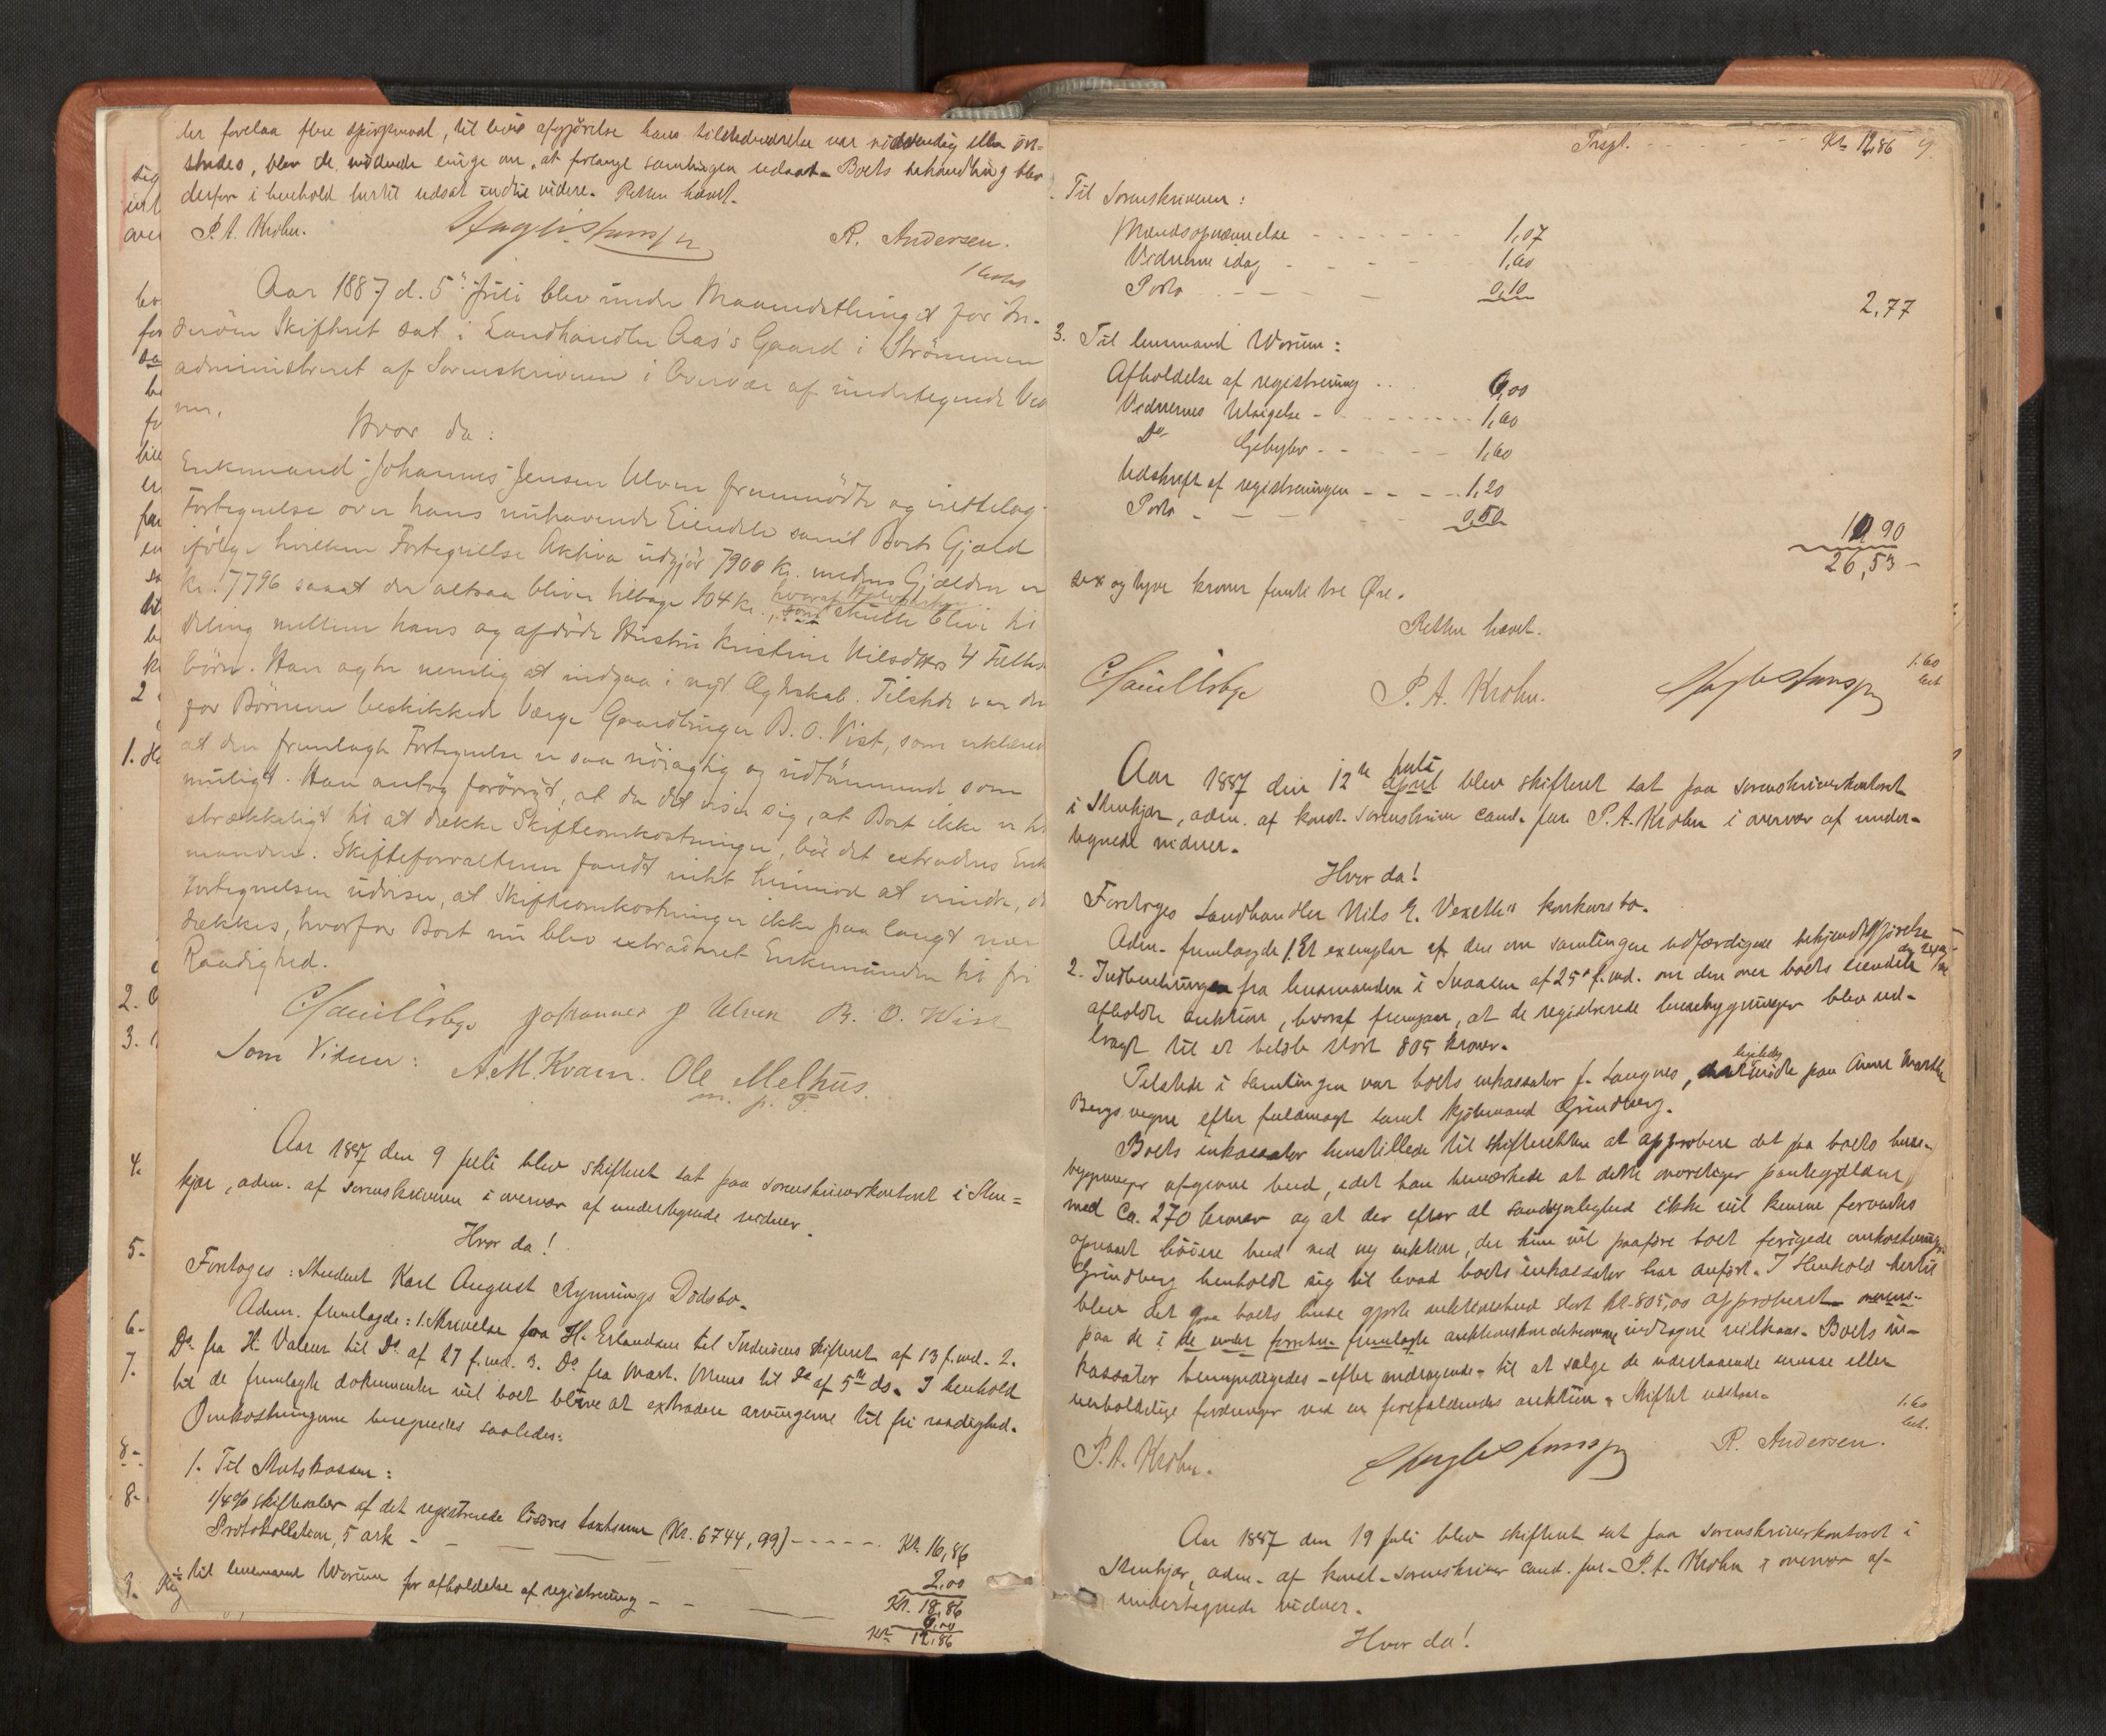 der forelaa flere spørgsmaal, til hvis afgjörelse hans tilstedeværelse var nödvendig eller ön-
skedes, blev de mödende enige om at forlange samlingen udsat. Boets behandling blev
derfor i henhold hertil udsat indtil videre. Retten hævet.
P. A. Krohn. R. Andersen.
Aar 1887 d. 5te Juli blev under Maanedsthinget for In-
deröen Skifteret sat i Landhandler Aas's Gaard i Strömmen
administreret af Sorenskriveren i Overvær af undertegnede Vid
ner.
Hvor da:
Enkemand Johannes Jensen Ulven fremmödte og irettelag
Fortegnelse over hans iihavende Eiendele samt Boets Gjæld
ifölge hvilken Fortegnelse Aktiva udgjör 7900 Kr. medens Gjælden er
Kr. 7796 saaat der altsaa bliver tilbage 104 Kr., hvoraf Halvparten
som skulde blive til
deling mellem hans og afdöde Hustru Kristine Nilsdtrs 4 Fælles
börn. Han agter nemlig at indgaa i nyt Ægteskab. Tilstede var den
for Börnene beskikkede Værge Gaardbruger B. O. Vist, som erklæred
at den fremlagte Fortegnelse er saa nöiagtig og udtömmende som
muligt. Han antog forövrigt, at da det viser sig, at Boet ikke er til
strækkeligt til at dække Skifteomkostninger, bör det extraderes Enke
manden. Skifteforvalteren fandt intet herimod at erindre, da
Fortegnelsen udviser, at Skifteomkostninger ikke paa langt nær
dækkes, hvorfor Boet nu blev extraderet Enkemanden til fri
Raadighed.
Johannes J Ulven B. O. Wist
Som Vidner: A. M. Kvam. Ole Melhus.
m. p. P.
Aar 1887 den 9 juli blev skifteret sat paa sorenskriverkontoret i Sten=
kjær, adm. af sorenskriveren i overvær af undertegnede vidner.
Hvor da!
Foretoges: Student Karl August Rynnings Dödsbo.
Adm. fremlagde: 1. Skrivelse fra H. Erlandsen til Inderöens skifteret af 13 f. md. 2.
Do fra H. Valeur til Do af 27 f. md. 3. Do fra Mart. Muus til Do af 5te ds. I henhold
til de fremlagte dokumenter vil boet blive at extradere arvingerne til fri raadighed.
Omkostningerne beregnedes saaledes:
1. Til Statskassen:
1/4% skifteskat af det registrerede lösöres taxtsum (Kr. 6744,99) - - - - - Kr. 16,86
Protokollation, 5 ark - 2,00
Kr. 18,86
÷ til lensmand Worum for afholdelse af registrering - - 6,00
Kr. 12,86
Trspt. - - - - - - Kr. 12,86
Til Sorenskriveren:
Mandsopnævnelse - - - - - - - 1,07
Vidnerne idag - - - - 1,60
Porto - - - - 0,10
2,77
3. Til lensmand Worum:
Afholdelse af registrering . . 6,00
Vidnernes tilsigelse - - - - - - - 1,60
Do Gebyhr - - - - - 1,60
Udskrift af registreringen - - - - 1,20
Porto - - - - 0,50
10,90
26,53 -
sex og tyve kroner femti tre Øre.
Retten hævet.
P. A. Krohn. 1.60
bet.
Aar 1887 den 12te april juli blev skifteret sat paa sorenskriverkontoret
i Stenkjær, adm. af konst. sorenskriver cand. jur. P. A. Krohn i overvær af under-
tegnede vidner.
Hvor da!
Foretoges Landhandler Nils E. Vexellsens konkursbo.
Adm. fremlagde 1. Et exemplar af den om samlingen udfærdigede bekjendtgjörelse
2. Indberetningen fra lensmanden i Snaasen af 25de f. md. om den over boets eiendele
afholdte auktion, hvoraf fremgaar, at de registrerede husebygninger blev ud-
bragt til et belöb stort 805 kroner.
Tilstede i samlingen var boets inkassator f. Langnes, ligeledes mödte paa Anne Marthe
Bergs vegne efter fuldmagt samt kjöbmand Grindberg.
Boets inkassator henstillede til skifteretten at approbere det paa boets huse-
bygninger afgivne bud, idet han bemærkede at dette overstiger pantegjælden
med ca. 270 kroner og at der efter al sandsynlighed ikke vil kunne forventes
opnaaet höiere bud ved ny auktion, der kun vil paaföre boet forögede omkostninger.
Grindberg henholdt sig til hvad boets inkassator har anfört. I Henhold hertil
blev det paa boets huse gjorte auktionsbud stort Kr. 805,00 approberet
paa de i de under forretn. fremlagte auktionskonditionerne indtagne vilkaar. Boets in-
kassator bemyndigedes - efter andragende - til at sælge de udestaaende usikre eller
uerholdelige fordringer ved en forefaldende auktion. Skiftet udsattes.
1.60
bet.
P. A. Krohn. R. Andersen.
Aar 1887 den 19 juli blev skifteret sat paa sorenskriverkontoret i
Stenkjær, adm. af konst. sorenskriver cand. jur. P. A. Krohn i overvær af
undertegnede vidner.
Hvor da!